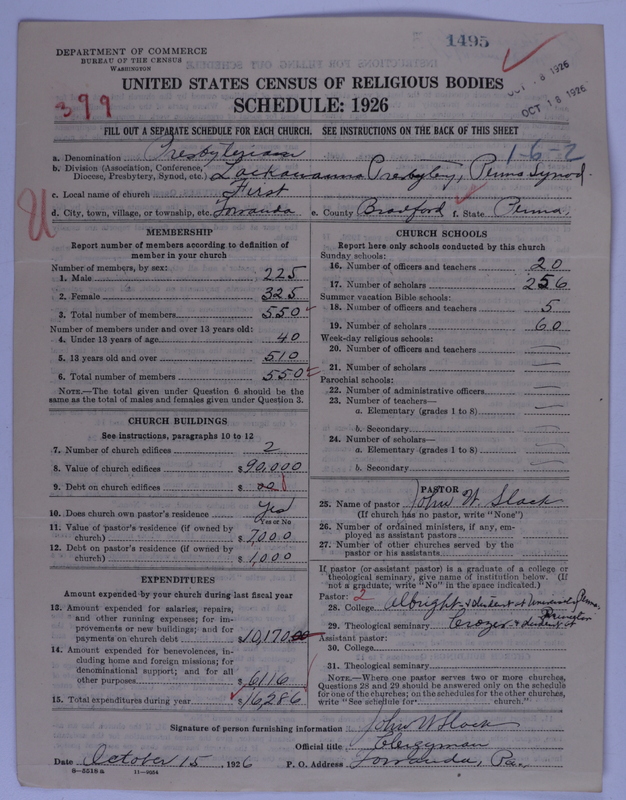 DEPARTMENT OF COMMERCE
BUREAU OF THE CENSUS
WASHINGTON
1495
OCT 18 1926
OCT 18 1926
UNITED STATES CENSUS OF RELIGIOUS BODIES
SCHEDULE: 1926
399
FILL OUT A SEPARATE SCHEDULE FOR EACH CHURCH. SEE INSTRUCTIONS ON THE BACK OF THIS SHEET
1-6-2
a. Denomination Presbyterian
b. Division (Association, Conference, Diocese, Presbytery, Synod, etc.) Lackawanna Presbytery, Penna Synod.
c. Local name of church First
d. City, town, village, or township, etc. Towanda e. County Bradford f. State Penna,
MEMBERSHIP
Report number of members according to definition of
member in your church
Number of members, by sex:
1. Male 225
2. Female 325
3. Total number of members 550
Number of members under and over 13 years old:
4. Under 13 years of age 40
5. 13 years old and over 510
6. Total number of members 550
NOTE.—The total given under Question 6 should be the
same as the total of males and females given under Question 3.
CHURCH BUILDINGS
See instructions, paragraphs 10 to 12
7. Number of church edifices 2
8. Value of church edifices $90,000
9. Debt on church edifices $ 00
10. Does church own pastor's residence Yes
Yes or No
11. Value of pastor's residence (if owned by
church) $7000
12. Debt on pastor's residence (if owned by
church) $1,000
EXPENDITURES
Amount expended by your church during last fiscal year
13. Amount expended for salaries, repairs,
and other running expenses; for im-
provements or new buildings; and for
payments on church debt $10,170.00
14. Amount expended for benevolences, in-
cluding home and foreign missions; for
denominational support; and for all
other purposes $6116
15. Total expenditures during year $16,286
CHURCH SCHOOLS
Report here only schools conducted by this church
Sunday schools:
16. Number of officers and teachers 20
17. Number of scholars 256
Summer vacation Bible schools:
18. Number of officers and teachers 5
19. Number of scholars 60
Week-day religious schools:
20. Number of officers and teachers —
21. Number of scholars —
Parochial schools:
22. Number of administrative officers —
23. Number of teachers—
a. Elementary (grades 1 to 8) —
b. Secondary —
24. Number of scholars—
a. Elementary (grades 1 to 8) —
b. Secondary —
PASTOR
25. Name of pastor John W. Slack
(If church has no pastor, write "None")
26. Number of ordained ministers, if any, em-
ployed as assistant pastors
27. Number of other churches served by the
pastor or his assistants
If pastor (or assistant pastor) is a graduate of a college or
theological seminary, give name of institution below. (If
not a graduate, write "No" in the space indicated.)
Pastor: 2
28. College Albright & student at University Penna.
29. Theological seminary Crozer & student at Princeton
Assistant pastor:
30. College
31. Theological seminary
NOTE.—Where one pastor serves two or more churches,
Questions 28 and 29 should be answered only on the schedule
for one of the churches; on the schedule for the other churches,
write "See schedule for church."
Signature of person furnishing information John W Slack
Official title Clergyman
Date October 15, 1926 P. O. Address Towanda, Pa.,
8-5518 a 11-9054